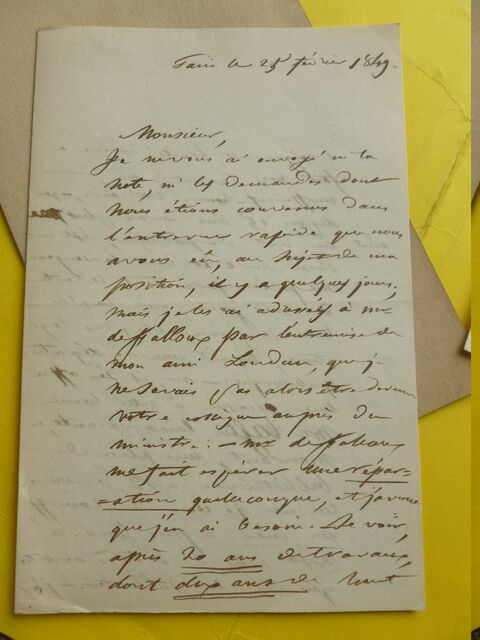 Paris le 25 février 1849.
Monsieur,
Je ne vous ai envoyé ni la
note, ni les demandes dont
nous étions convenus dans
l'entrevue rapide que nous
avons eue, au sujet de ma
position, il y a quelques jours;
mais je les ai adressés à mr
de falloux par l'entremise de
mon ami Loudun, que je
ne savais pas alors être devenu
votre collègue auprès du
ministre. — mr de falloux
me fait espérer une répar-
-ation quelconque, et j'avoue
que j'en ai besoin. Se voir,
après 20 ans de travaux,
dont dix ans de haut